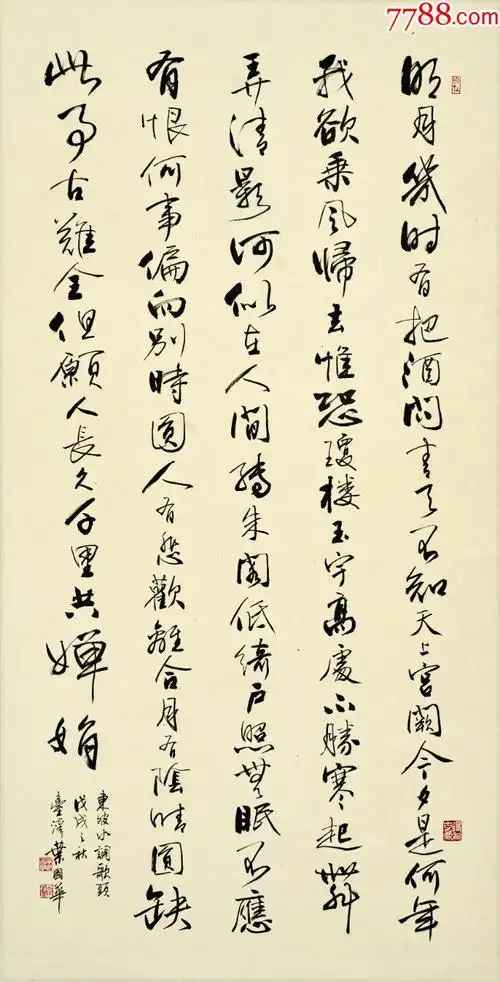 7788.com
明月幾时有把酒問青天不知天上宫闕今夕是何年
我欲乘风歸去惟恐瓊楼玉宇高處不勝寒起舞
弄清影何似在人間轉朱阁低綺户照無眠不應
有恨何事偏向别時圓人有悲歡離合月有陰晴圓缺
此事古難全但願人長久千里共嬋娟
東坡水調歌頭
戊戌之秋
葉国華